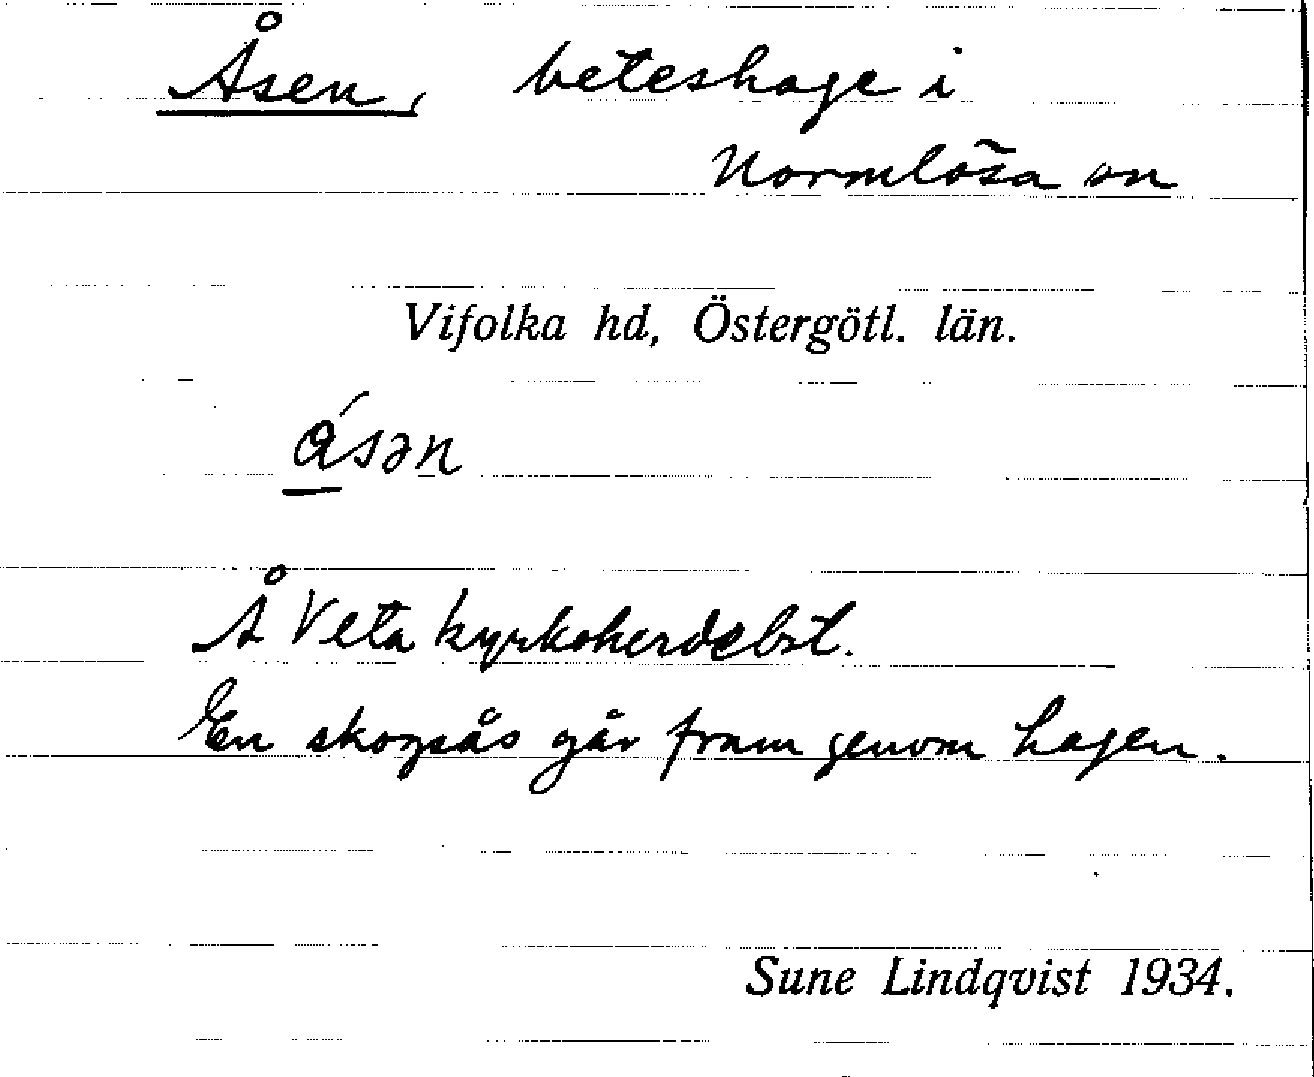 Åsen, beteshage i
Normlösa sn
Vifolka hd, Östergötl. län.
ǻsən
Å Veta kyrkoherdebst.
En skogsås går fram genom hagen.
Sune Lindqvist 1934.